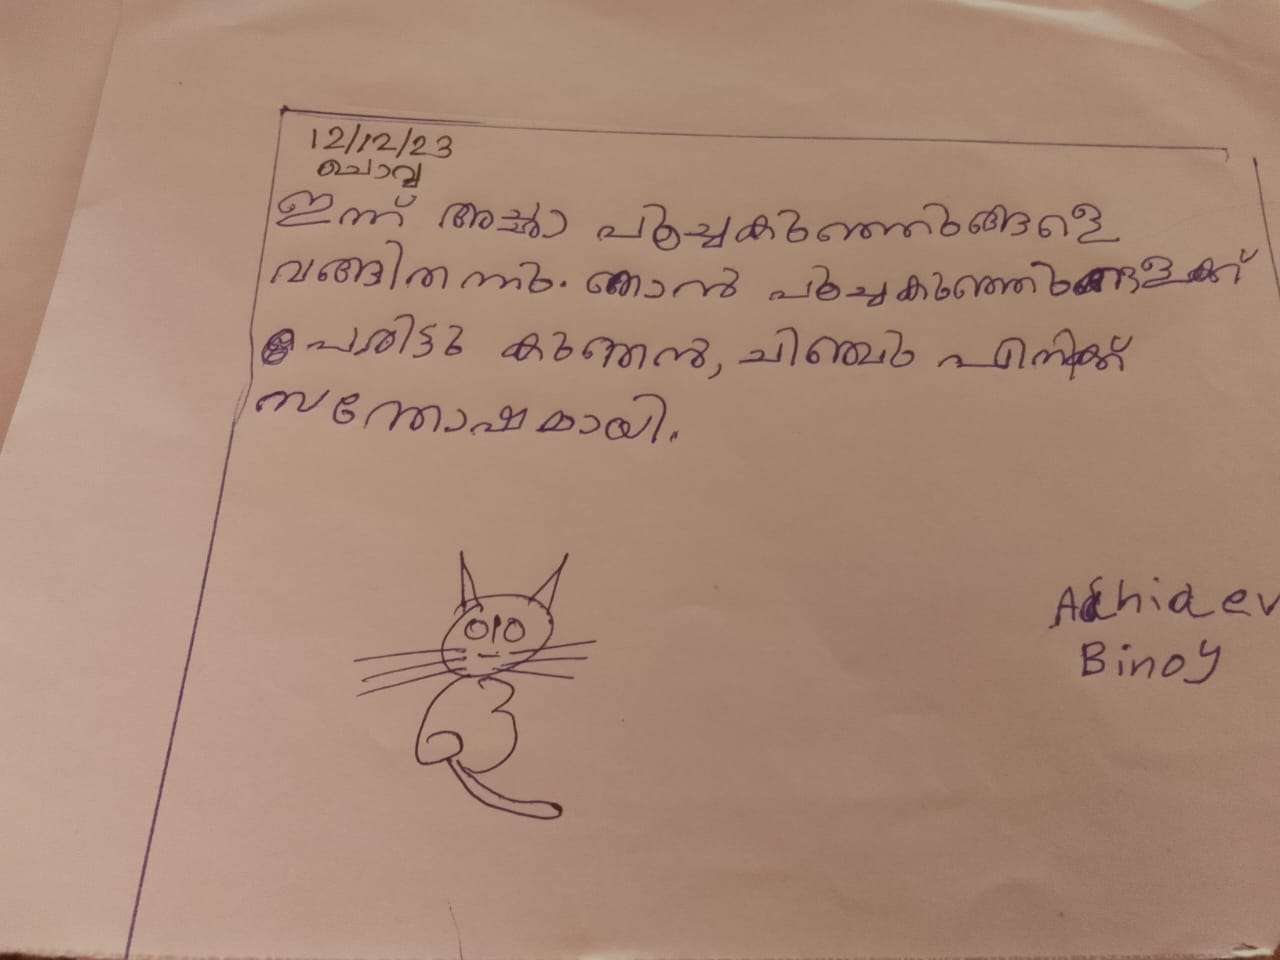 12/12/23
ചൊവ്വ
ഇന്ന് അച്ഛാ പൂച്ചകുഞ്ഞുങ്ങളെ
വങ്ങിതന്നു. ഞാൻ പൂച്ചകുഞ്ഞുങ്ങളക്ക്
പേരിട്ടു കുഞ്ഞൻ, ചിഞ്ചു എനിക്ക്
സന്തോഷമായി.
Adhidev
Binoy